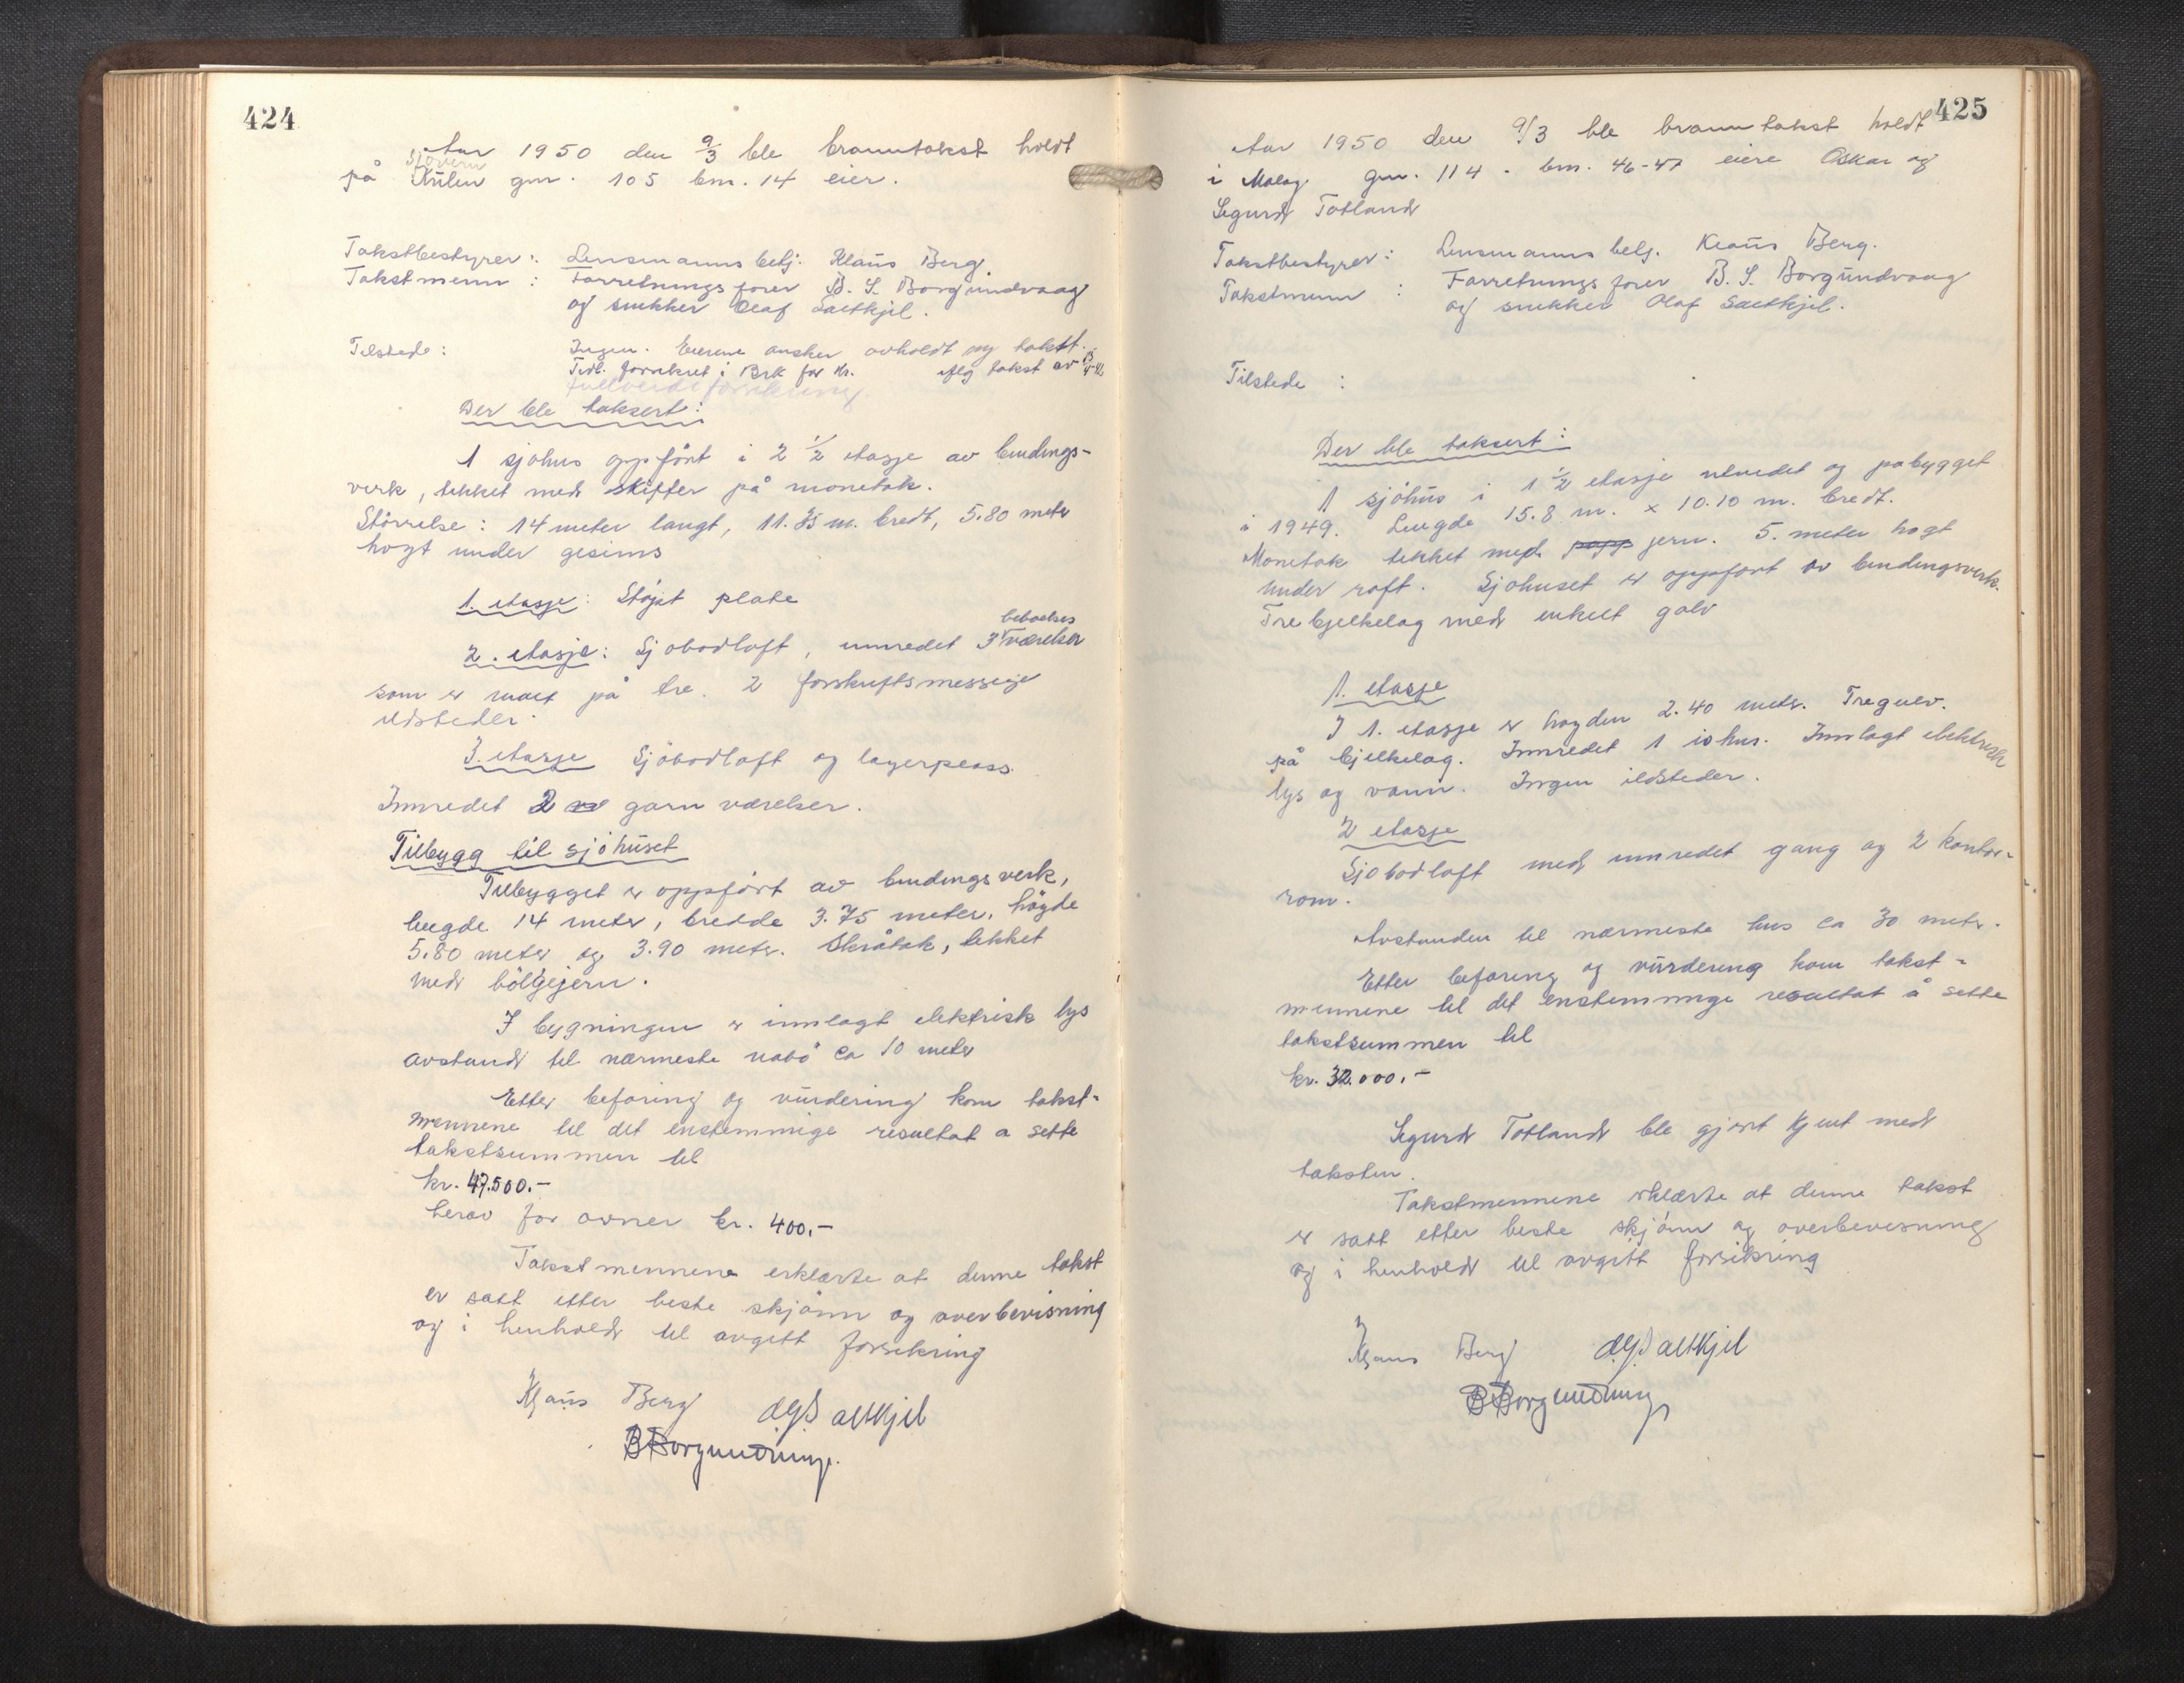 424
Aar 1950 den 9/3 ble branntakst holdt
Sjøvern
på Kulen gnr. 105 bnr. 14 eier.
Takstbestyrer: Lensmannsbetj. Klaus Berg.
Takstmenn : Forretningsfører B. S. Borgundvaag
og snekker Olaf Saltkjel.
Tilstede: Ingen. Eierene ønsker avholdt ny takst.
Tidl. forsikret i Brk for kr. iflg takst av
fullverdiforsikring
Der ble taksert:
1 sjøhus oppført i 2 1/2 etasje av bindings-
verk, tekket med skifter på mønetak.
Størrelse: 14 meter langt, 11.35 m. bredt, 5.80 meter
høgt under gesims
1. etasje: Støpt plate
2. etasje: Sjøbodloft, innredet 3 beboelses værelser
som er malt på tre. 2 forskriftsmessige
ildsteder.
3. etasje Sjøbodloft og lagerplass.
Innredet 2 garn værelser.
Tilbygg til sjøhuset
Tilbygget er oppført av bindingsverk,
lengde 14 meter, bredde 3.75 meter, høgde
5.80 meter og 3.90 meter. Skråtak, tekket
med bölgejern.
I bygningen er innlagt elektrisk lys
avstand til nærmeste nabo ca 10 meter
Etter befaring og vurdering kom takst-
mennene til det enstemmige resultat a sette
takstsummen til
kr. 47.500.-
herav for ovner kr. 400.-
Takstmennene erklærte at denne takst
er satt etter beste skjønn og overbevisning
og i henhold til avgitt forsikring
Klaus Berg O. Saltkjel
B Borgundvaag.
425
Aar 1950 den 9/3 ble branntakst holdt
i Måløy gnr. 114 - bnr. 46-47 eiere Oskar og
Sigurd Totland
Takstbestyrer: Lensmannsbetj. Klaus Berg.
Takstmenn : Forretningsfører B. S. Borgundvaag
og snekker Olaf Saltkjel.
Tilstede :
Der ble taksert:
1 sjøhus i 1 1/2 etasje utvidet og påbygget
i 1949. Lengde 15.8 m. x 10.10 m. bredt.
Mønetak tekket med papp jern. 5. meter høgt
under raft. Sjøhuset er oppført av bindingsverk.
Trebjelkelag med enkelt golv
1. etasje
I 1. etasje er høyden 2.40 meter. Tregulv.
på bjelkelag. Innredet 1 ishus. Innlagt elektrisk
lys og vann. Ingen ildsteder.
2 etasje
Sjøbodloft med innredet gang og 2 kontor-
rom.
Avstanden til nærmeste hus ca 30 meter.
Etter befaring og vurdering kom takst-
mennene til det enstemmige resultat å sette
takstsummen til
kr. 32.000.-
Sigurd Totland ble gjort kjent med
taksten.
Takstmennene erklærte at denne takst
er satt etter beste skjønn og overbevisning
og i henhold til avgitt forsikring
Klaus Berg O. Saltkjel
B Borgundvaag